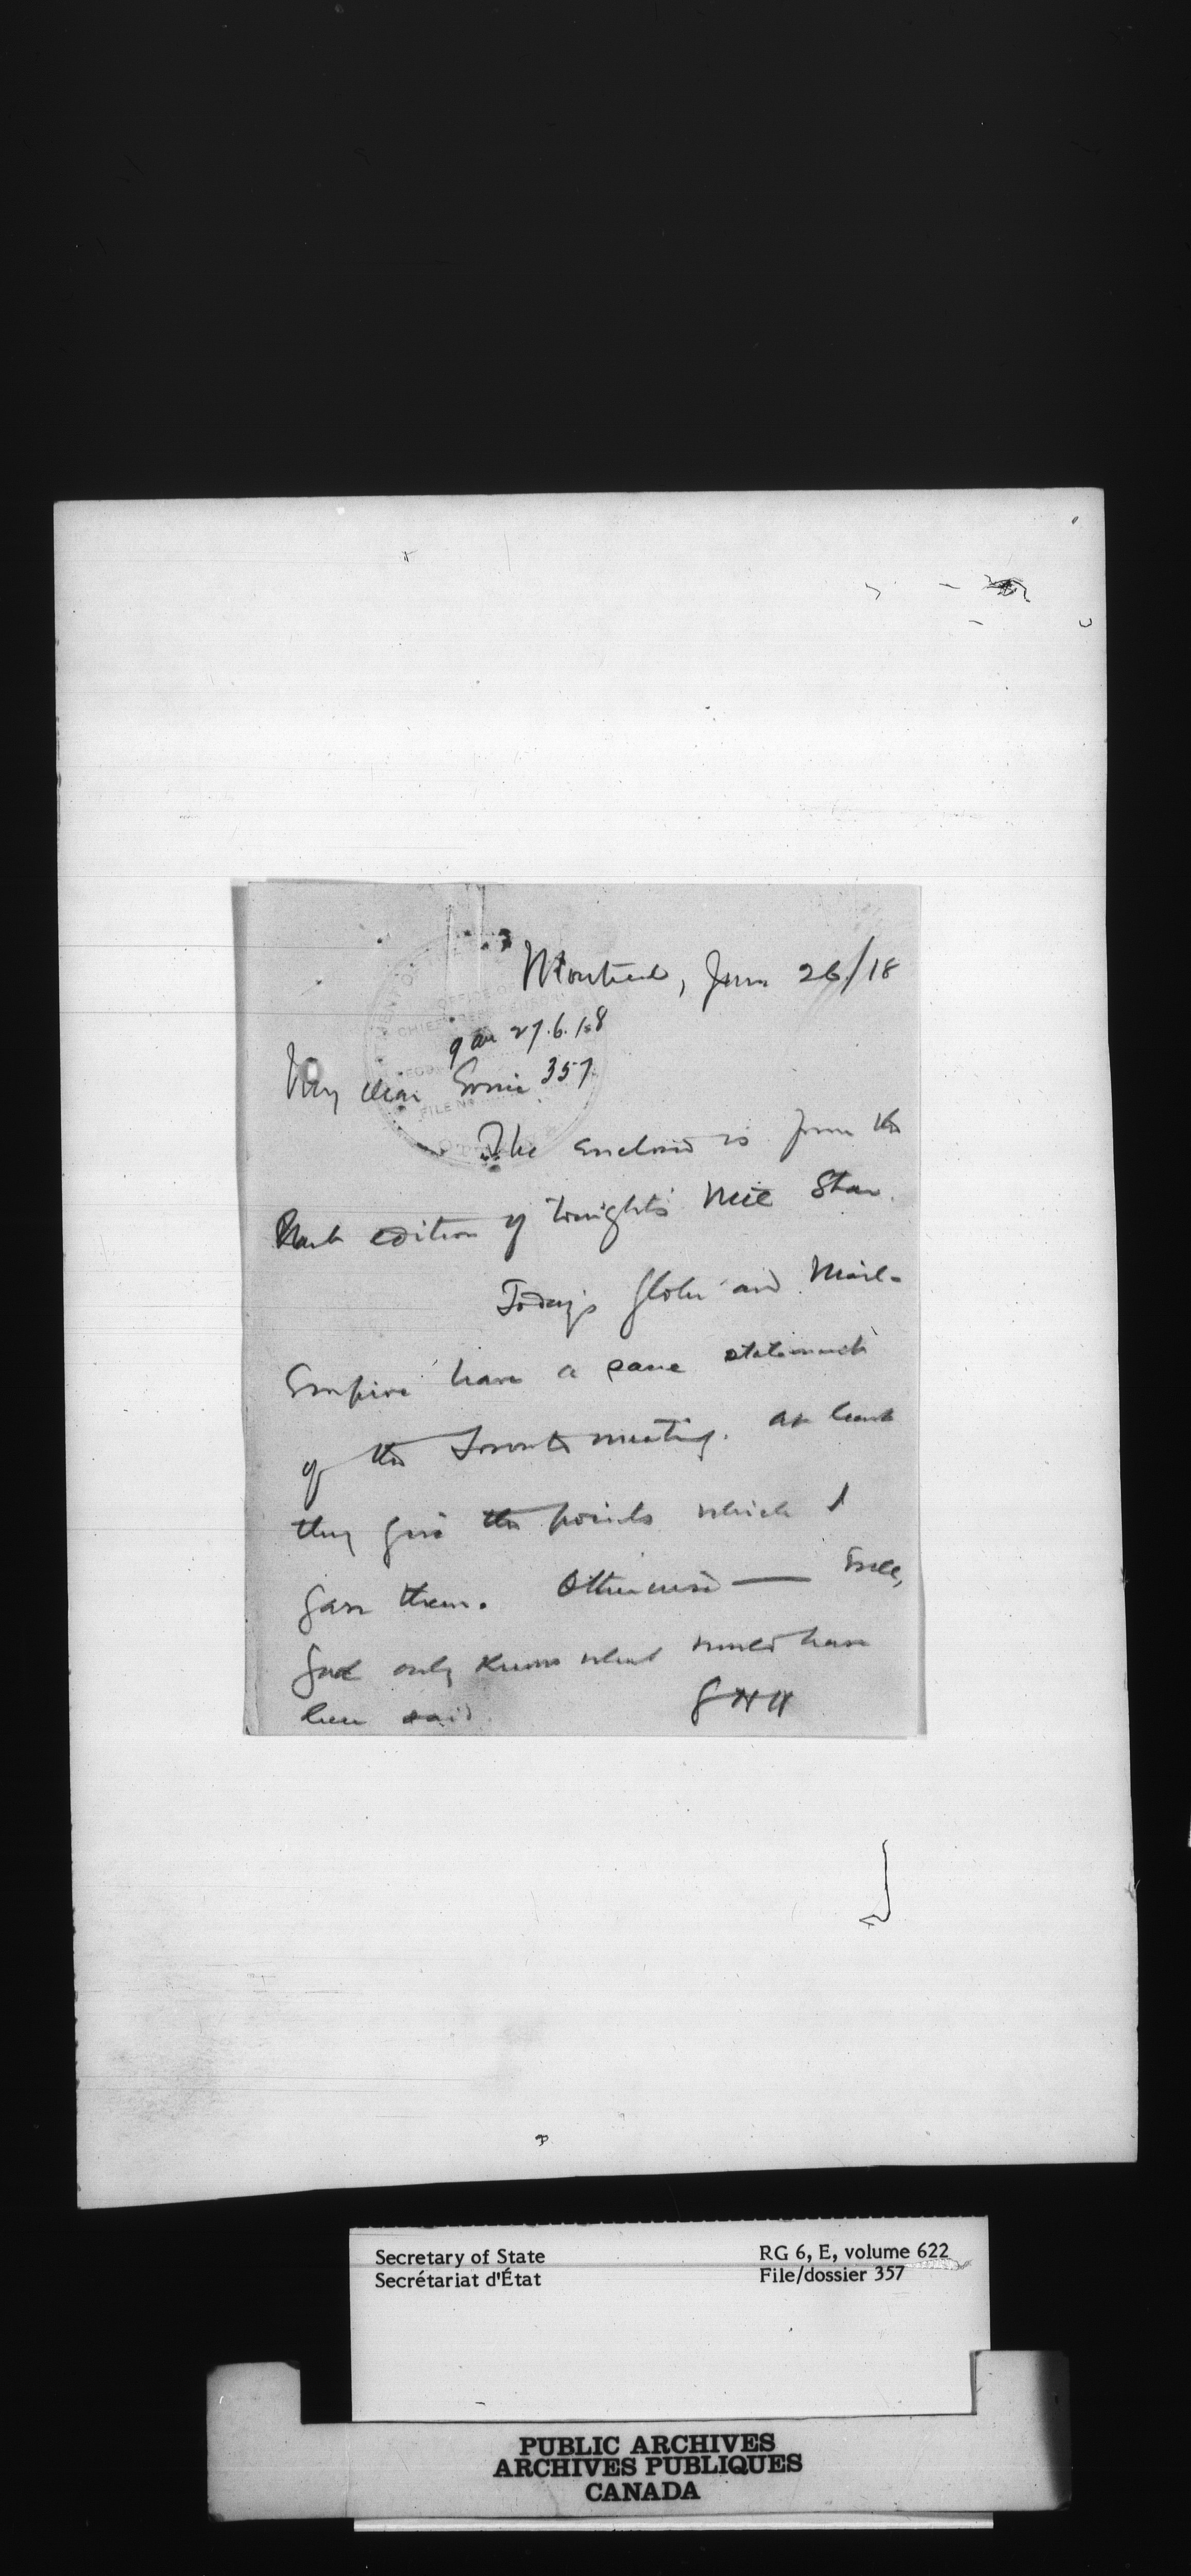 Montreal, June 26/18
9 am 27.6.18
OFFICE OF
CHIEF
357
FILE No
My dear Ernie
The enclosed is from the
edition of tonight's Mtl Star.
Today's Globe and Mail-
Empire have a sane statement
of the Toronto meeting. at least
they give the points which I
gave them. Otherwise — well,
God only knows what would have
been said.
Secretary of State
Secrétariat d'État
RG 6, E, volume 622
File/dossier 357
PUBLIC ARCHIVES
ARCHIVES PUBLIQUES
CANADA